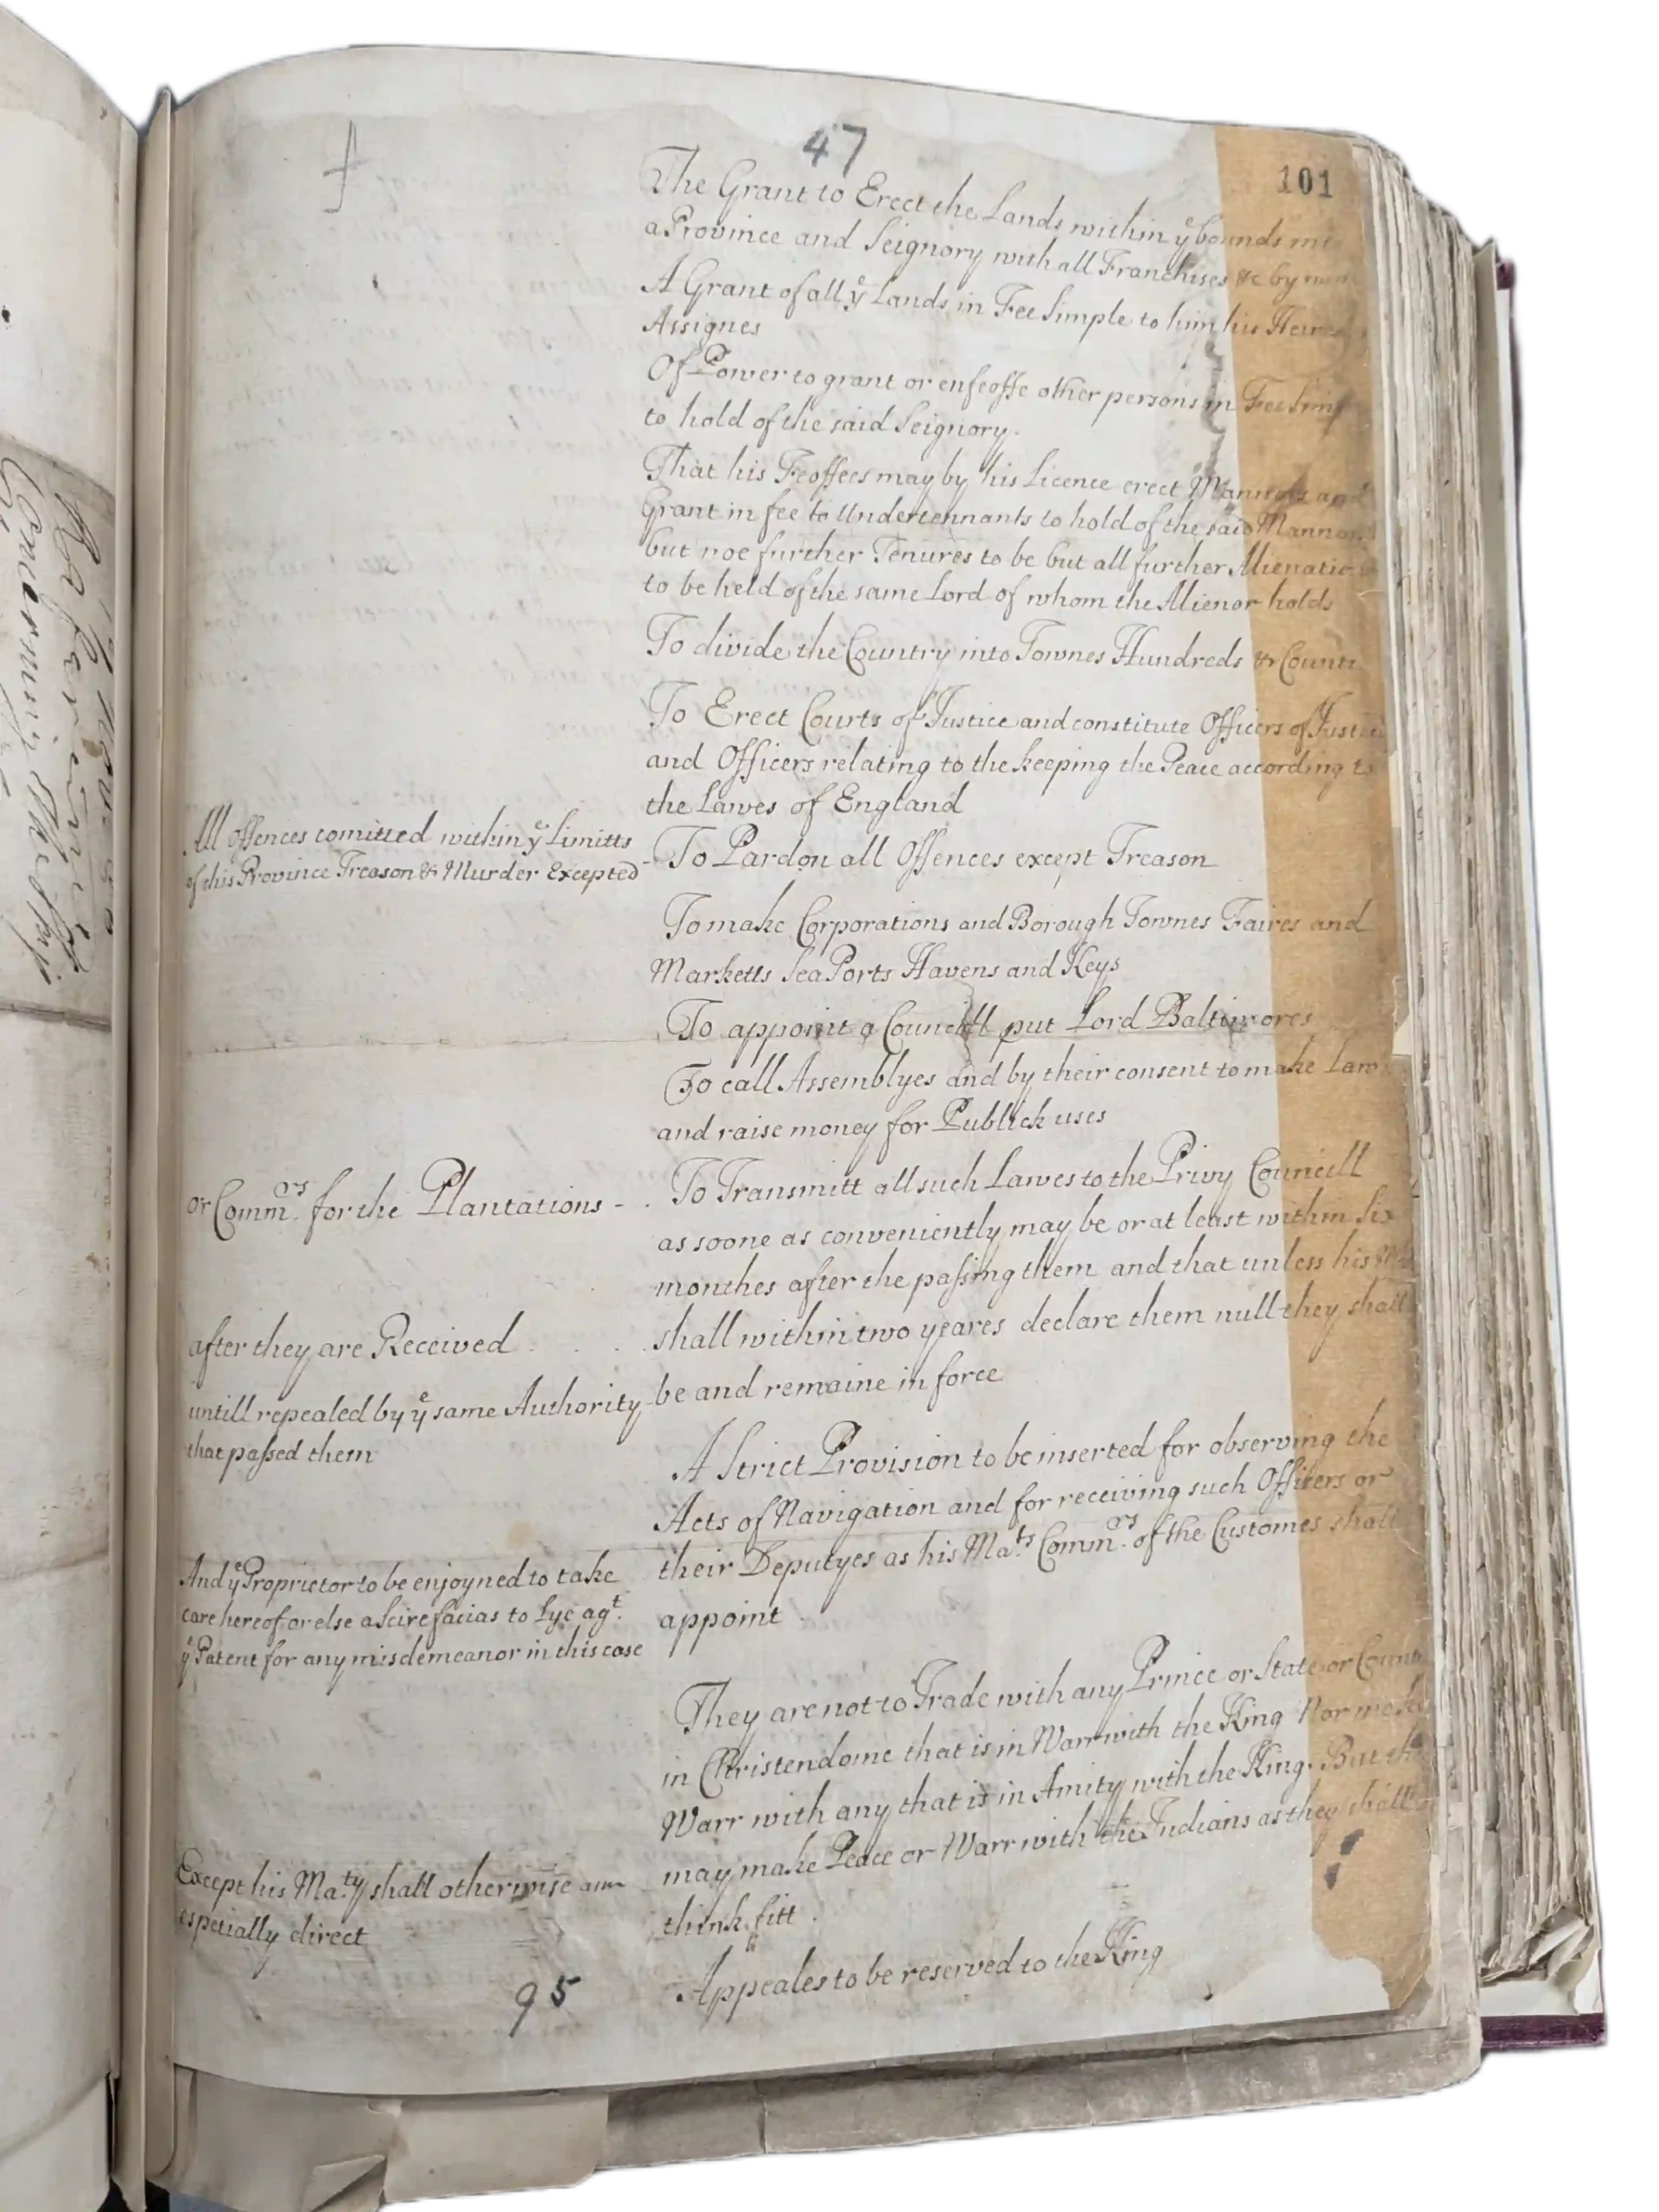 47
101
The Grant to Erect the Lands within yͤ bounds
a Province and Seignory with all Franchises &c by
A Grant of all yͤ Lands in Fee Simple to him his Heires
Assignes
Of Power to grant or enfeoffe other persons in Fee Simp
to hold of the said Seignory.
That his Feoffees may by his Licence erect Mannors and
Grant in fee to Undertennants to hold of the said Mannor
but noe further Tenures to be but all further Alienatio
to be held of the same Lord of whom the Alienor holds
To divide the Country into Townes Hundreds & Counti
To Erect Courts of Justice and constitute Officers of Justic
and Officers relating to the keeping the Peace according to
the Lawes of England
All Offences comitted within yͤ Limitts
of this Province Treason & Murder Excepted
To Pardon all Offences except Treason
To make Corporations and Borough Townes Faires and
Marketts Sea Ports Havens and Keys
To appoint a Councill put Lord Baltimores
To call Assemblyes and by their consent to make Law
and raise money for Publick uses
or Comm.ʳˢ for the Plantations -
To Transmitt all such Lawes to the Privy Councill
as soone as conveniently may be or at least within Six
monthes after the passing them and that unless his Ma
after they are Received . . .
shall within two yeares declare them null they shall
untill repealed by yͤ same Authority
that passed them
be and remaine in force
A Strict Provision to be inserted for observing the
Acts of Navigation and for receiving such Officers or
their Deputyes as his Ma.ᵗˢ Comm.ʳˢ of the Customes shall
And yͤ Proprietor to be enjoyned to take
care hereof or else a Scire facias to Lye ag.ᵗ
yͤ Patent for any misdemeanor in this case
appoint
They are not to Trade with any Prince or State or Count
in Christendome that is in Warr with the King Nor make
Warr with any that is in Amity with the King. But th
may make Peace or Warr with the Indians as they shall
Except his Ma.ᵗʸ shall otherwise
especially direct
think fitt.
Appeales to be reserved to the King
95